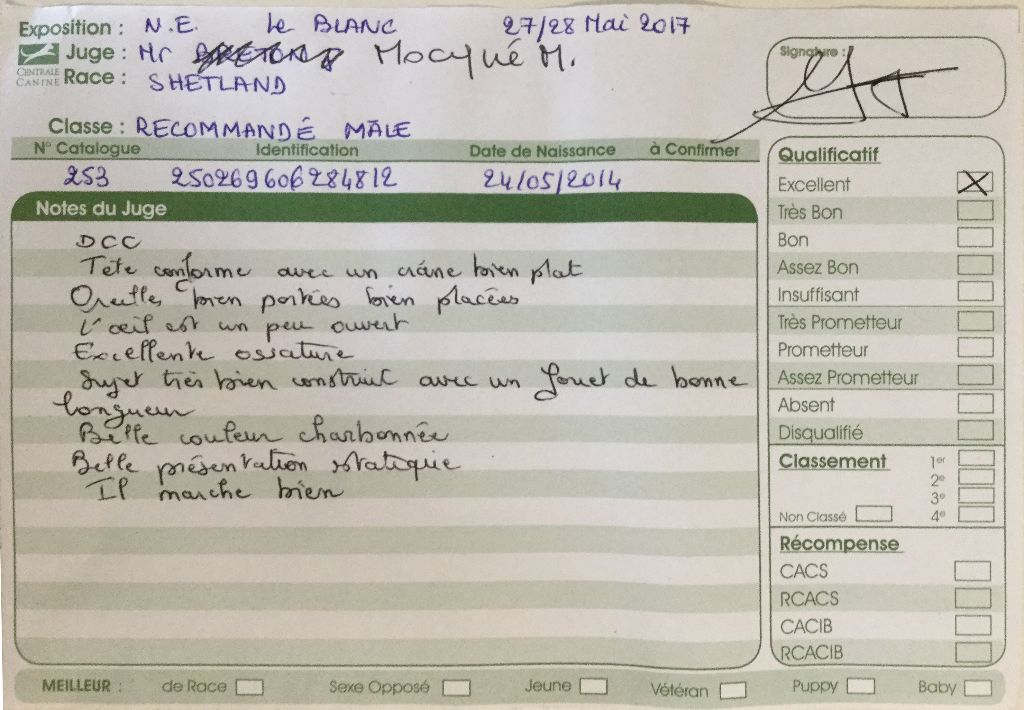 Exposition : N.E. Le BLANC 27/28 Mai 2017
Juge : Mr Mocqué M.
CENTRALE CANINE
Race : SHETLAND
Signature :
Classe : RECOMMANDÉ MÂLE
N° Catalogue Identification Date de Naissance à Confirmer
253 250269606284812 24/05/2014
Notes du Juge
DCC
Tête conforme avec un crâne bien plat
Oreilles bien portées bien placées
L'oeil est un peu ouvert
Excellente ossature
Sujet très bien construit avec un fouet de bonne
longueur
Belle couleur charbonnée
Belle présentation statique
Il marche bien
Qualificatif
Excellent X
Très Bon
Bon
Assez Bon
Insuffisant
Très Prometteur
Prometteur
Assez Prometteur
Absent
Disqualifié
Classement 1er
2e
3e
Non Classé 4e
Récompense
CACS
RCACS
CACIB
RCACIB
MEILLEUR : de Race Sexe Opposé Jeune Vétéran Puppy Baby